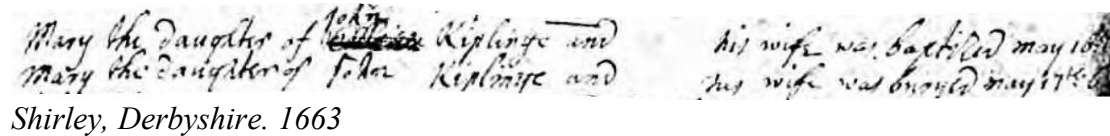 John
Mary the daughter of Kiplinge and his wife was baptised may 10th
Mary the daughter of John Kiplinge and his wife was buryed may 17th
Shirley, Derbyshire. 1663